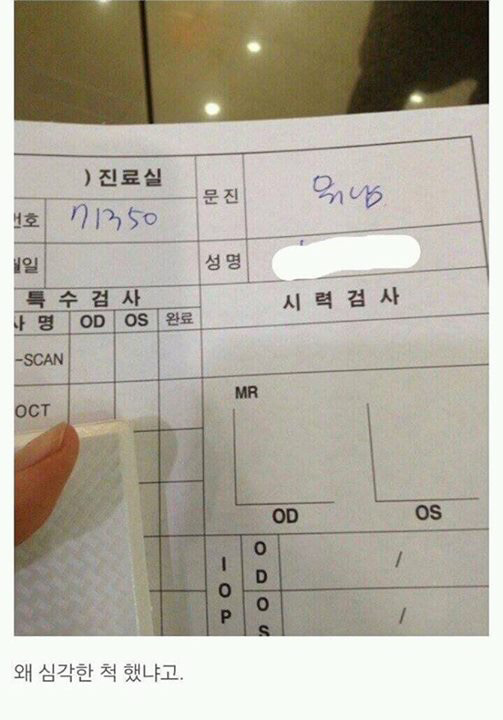 ) 진료실
문진
번호 71350
월일
성명
특수검사
시력검사
사 명 OD OS 완료
-SCAN
OCT
MR
OD OS
IOP
OD /
OS /
왜 심각한 척 했냐고.